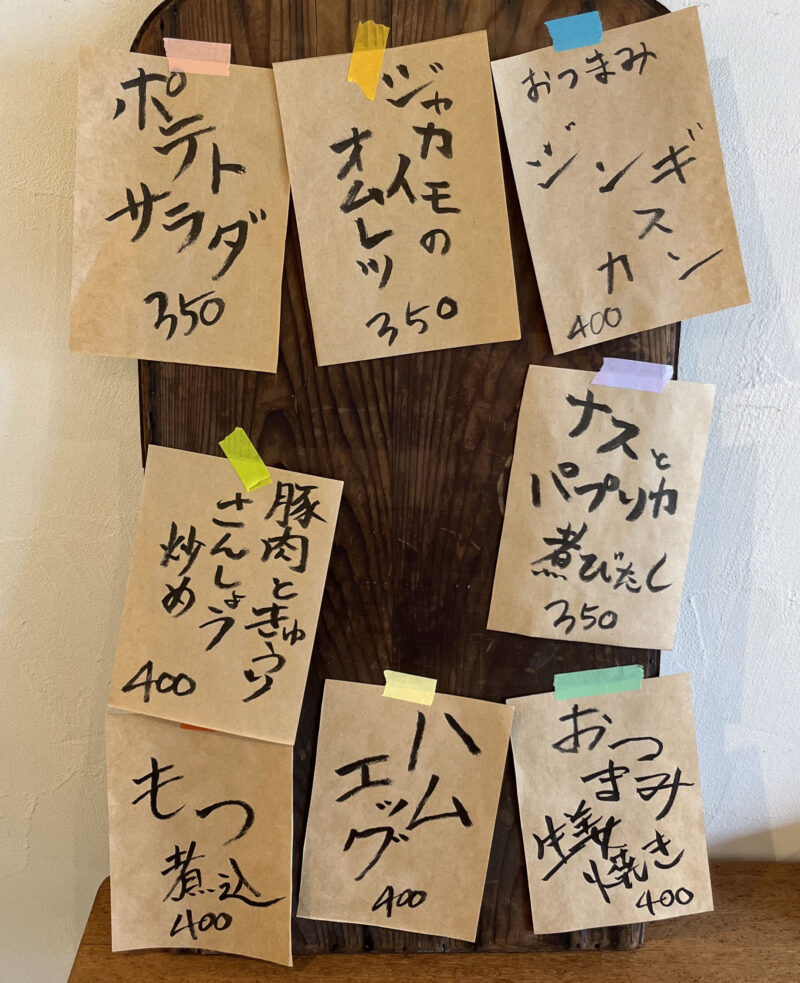 ポテト
サラダ
350
ジャカイモの
オムレツ
350
おつまみ
ジンギ
ス
カン
400
豚肉ときゅうり
さんしょう
炒め
400
ナスと
パプリカ
煮びたし
350
もつ
煮込
400
ハム
エッグ
400
おつ
まみ
生姜
焼き
400